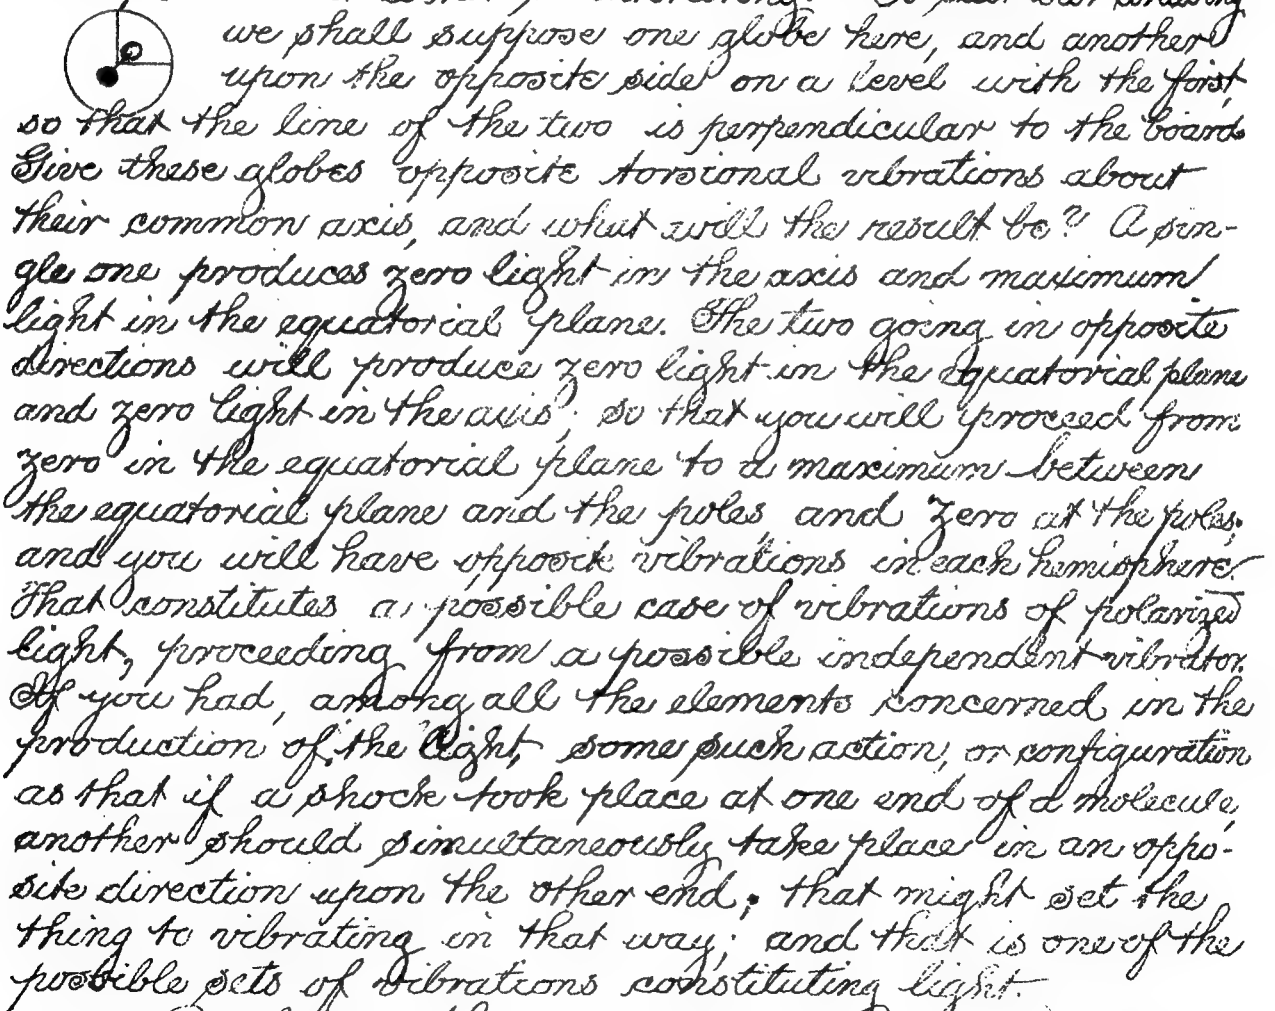 we shall suppose one globe here, and another
upon the opposite side on a level with the first,
so that the line of the two is perpendicular to the board.
Give these globes opposite torsional vibrations about
their common axis, and what will the result be? A sin-
gle one produces zero light in the axis and maximum
light in the equatorial plane. The two going in opposite
directions will produce zero light in the equatorial plane
and zero light in the axis; so that you will proceed from
zero in the equatorial plane to a maximum between
the equatorial plane and the poles, and zero at the poles;
and you will have opposite vibrations in each hemisphere.
That constitutes a possible case of vibrations of polarized
light, proceeding from a possible independent vibrator.
If you had, among all the elements concerned in the
production of the light, some such action, or configuration
as that if a shock took place at one end of a molecule,
another should simultaneously take place in an oppo-
site direction upon the other end; that might set the
thing to vibrating in that way; and that is one of the
possible sets of vibrations constituting light.